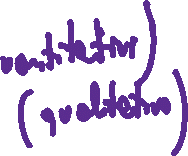 uantitative)
(qualitative)